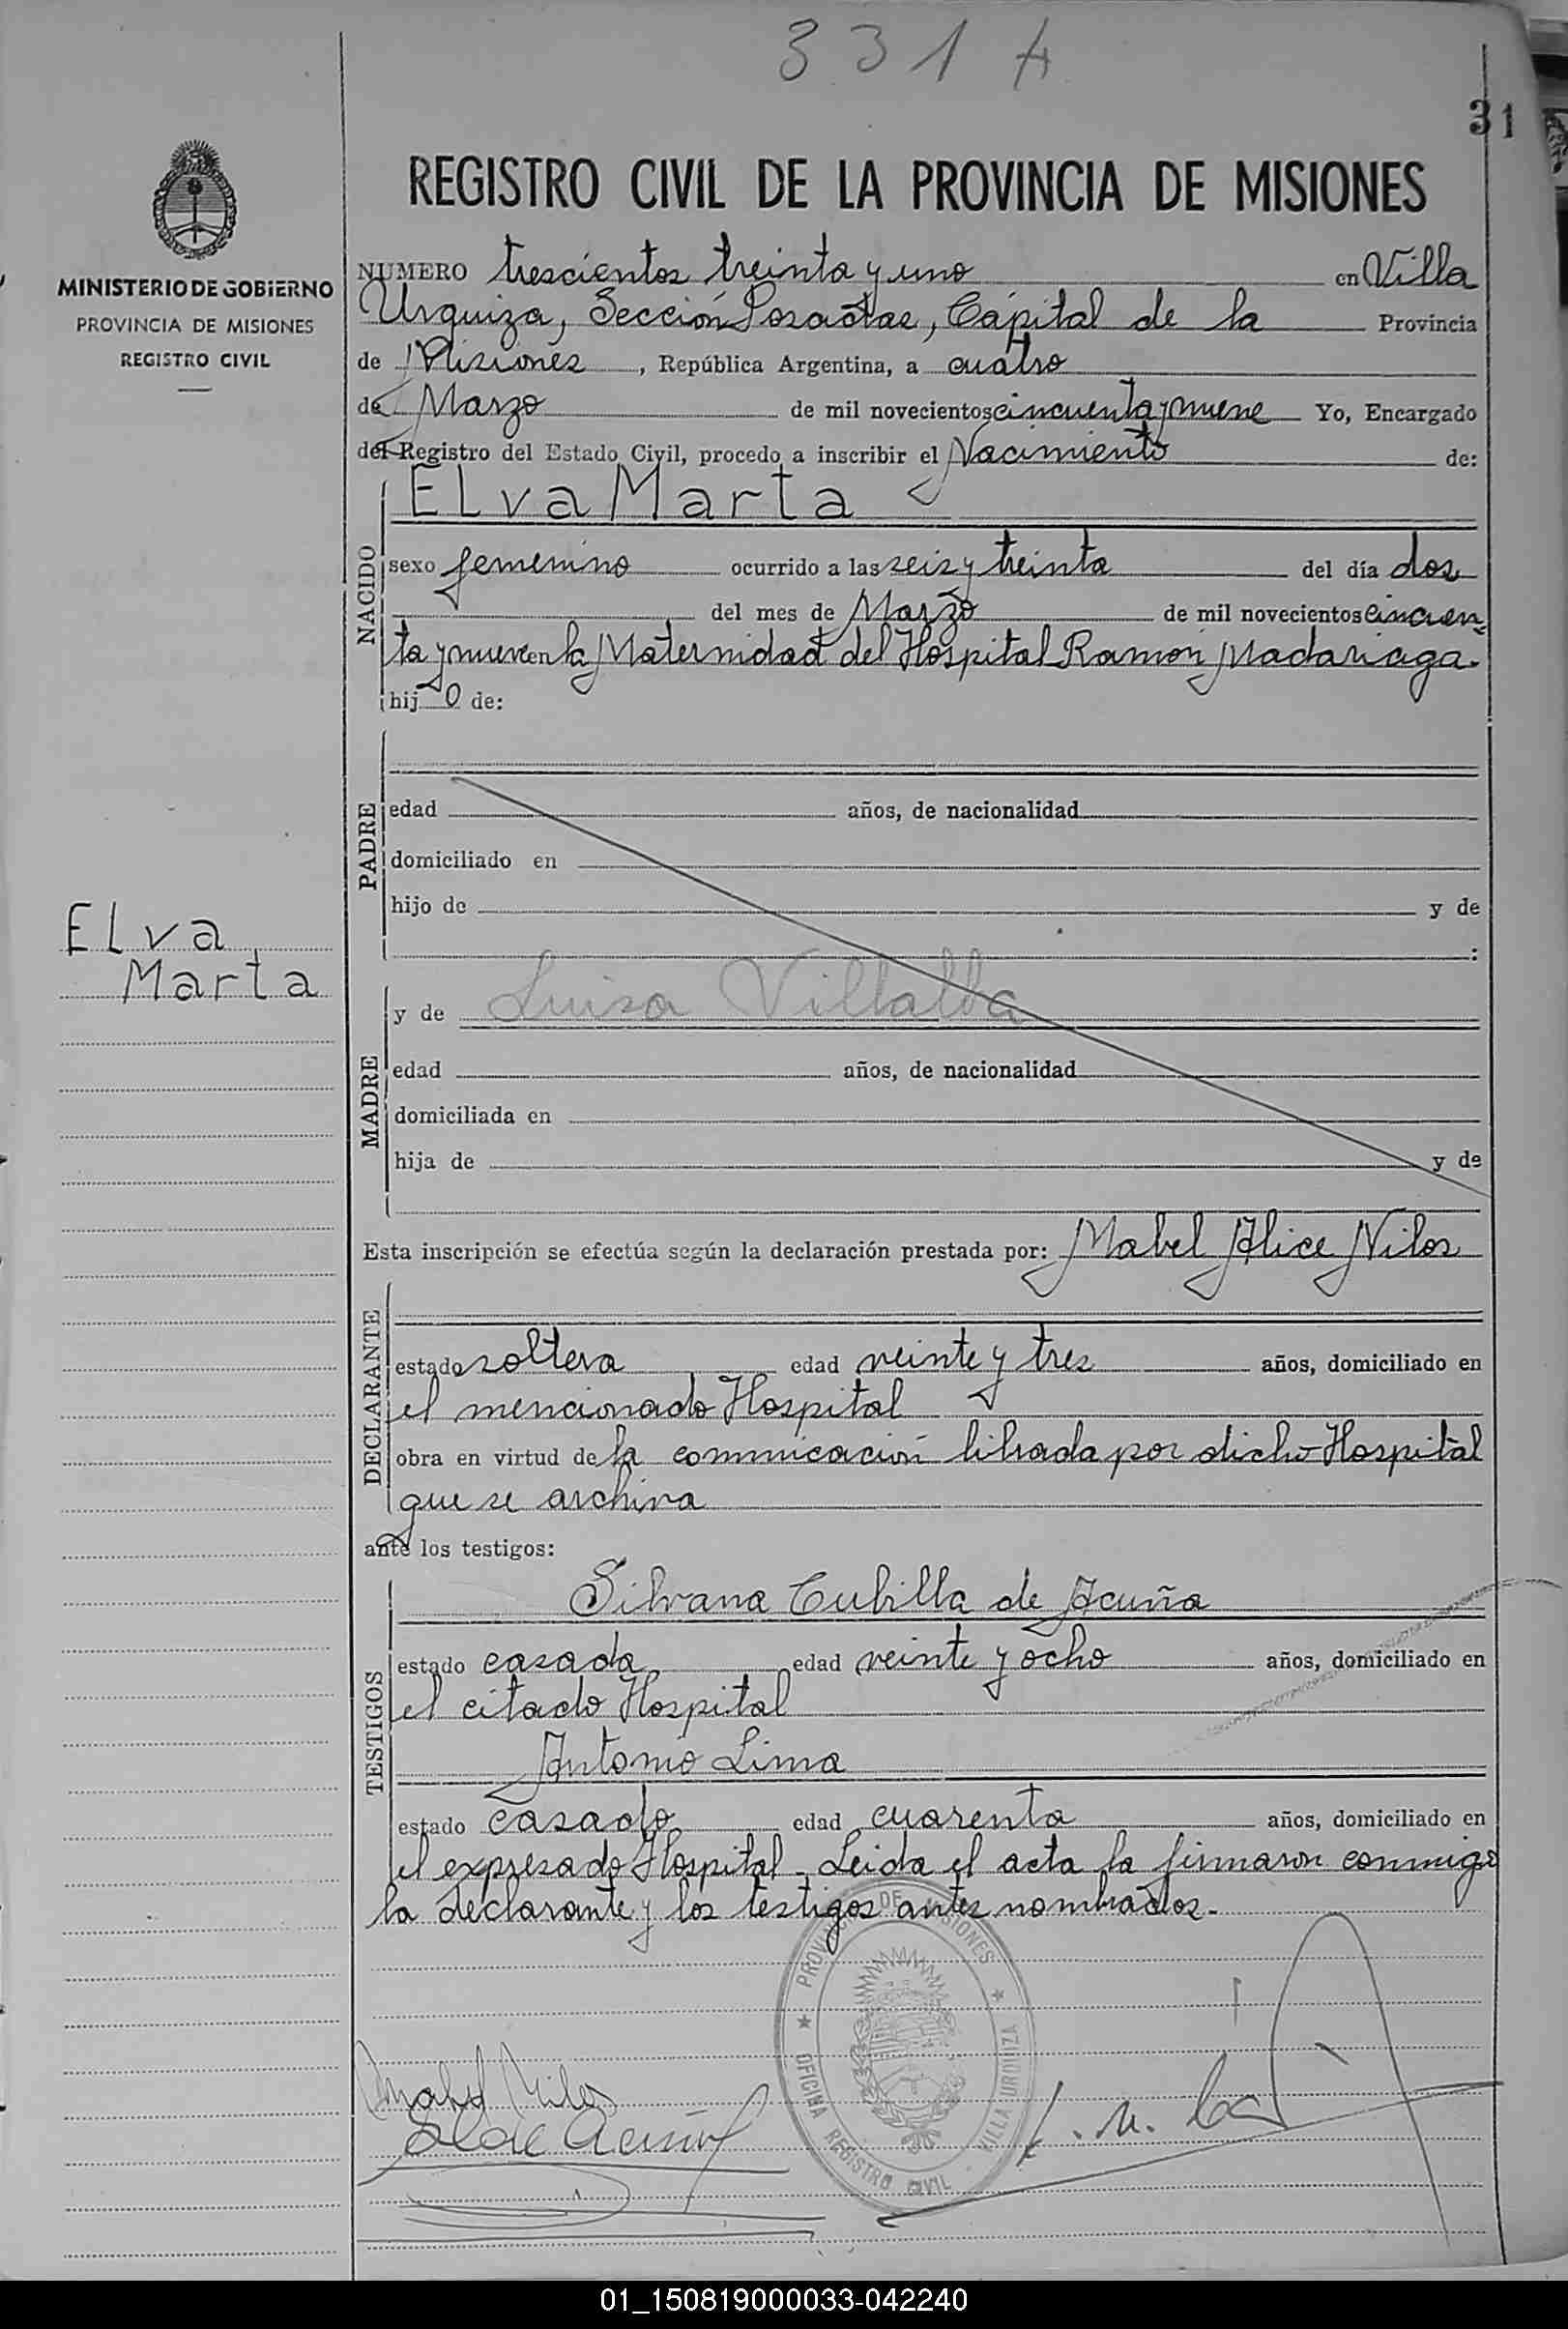 331 A
31
MINISTERIO DE GOBIERNO
PROVINCIA DE MISIONES
REGISTRO CIVIL
REGISTRO CIVIL DE LA PROVINCIA DE MISIONES
NUMERO trescientos treinta y uno en Villa
Urquiza, Sección Posadas, Cápital de la Provincia
de Misiones, República Argentina, a cuatro
de Marzo de mil novecientos cincuenta y nueve Yo, Encargado
del Registro del Estado Civil, procedo a inscribir el Nacimiento de:
Elva Marta
NACIDO
sexo femenino ocurrido a las seis y treinta del día dos
del mes de Marzo de mil novecientos cincuen
ta y nueve en la Maternidad del Hospital Ramón Madariaga.
hijo de:
PADRE
edad años, de nacionalidad
domiciliado en
hijo de y de
:
Elva
Marta
MADRE
y de Luisa Villalba
edad años, de nacionalidad
domiciliada en
hija de y de
Esta inscripción se efectúa según la declaración prestada por: Mabel Alice Nilos
DECLARANTE
estado soltera edad veinte y tres años, domiciliado en
el mencionado Hospital
obra en virtud de la comunicación librada por dicho Hospital
que se archiva
ante los testigos:
TESTIGOS
Silvana Cubilla de Acuña
estado casada edad veinte y ocho años, domiciliado en
el citado Hospital
Antonio Lima
estado casado edad cuarenta años, domiciliado en
el expresado Hospital. Leida el acta la firmaron conmigo
la declarante y los testigos antes nombrados.
PROVINCIA DE MISIONES
OFICINA REGISTRO CIVIL - VILLA URQUIZA
Mabel Nilos
de Acuña
01_150819000033-042240